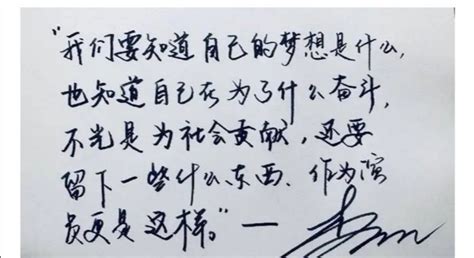 “我们要知道自己的梦想是什么,
也知道自己在为了什么奋斗,
不光是为社会贡献,还要
留下一些什么东西、作为演
员更是这样。”—